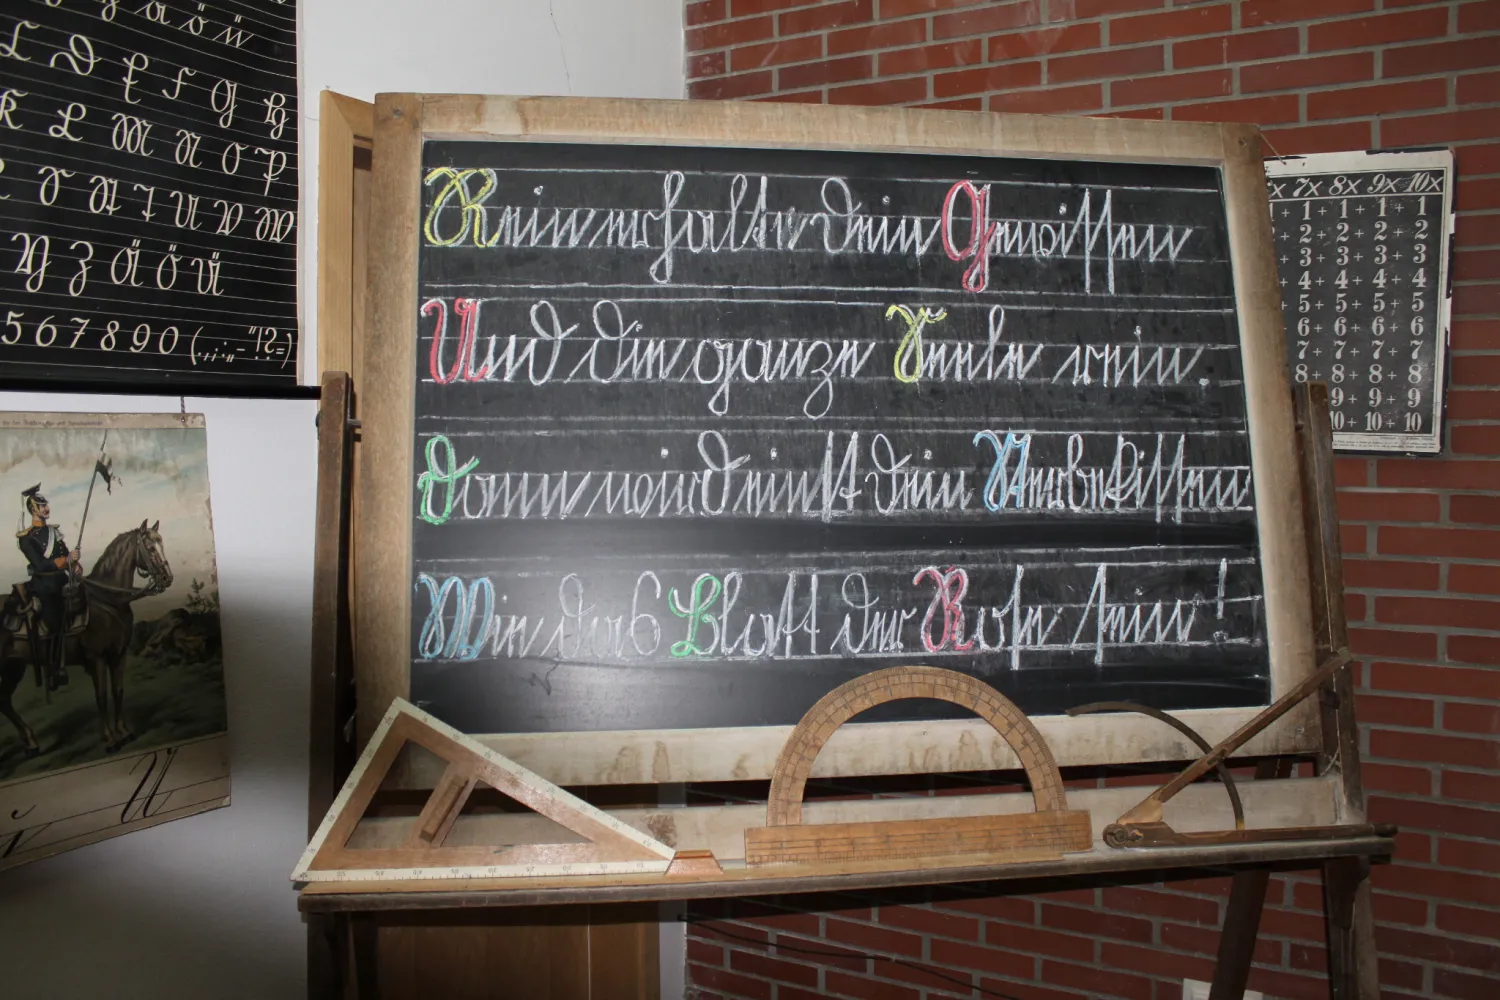 ä ö ü
C D E F G H
K L M N O P
Y Z Ä Ö Ü
5 6 7 8 9 0 (.,:;„-"!?=)
Rein erhalte dein Gewissen
Und die ganze Seele rein.
Dann wird einst dein Sterbekissen
Wie das Blatt der Rose sein!
x 7x 8x 9x 10x
1 + 1 + 1 + 1
+ 2 + 2 + 2 + 2
+ 3 + 3 + 3 + 3
+ 4 + 4 + 4 + 4
5 + 5 + 5 + 5
6 + 6 + 6 + 6
7 + 7 + 7 + 7
8 + 8 + 8 + 8
9 + 9 + 9
10 + 10 + 10